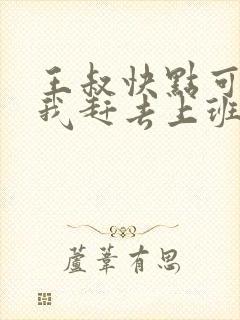 王叔快點可
我赶去上班
蘆葦有思